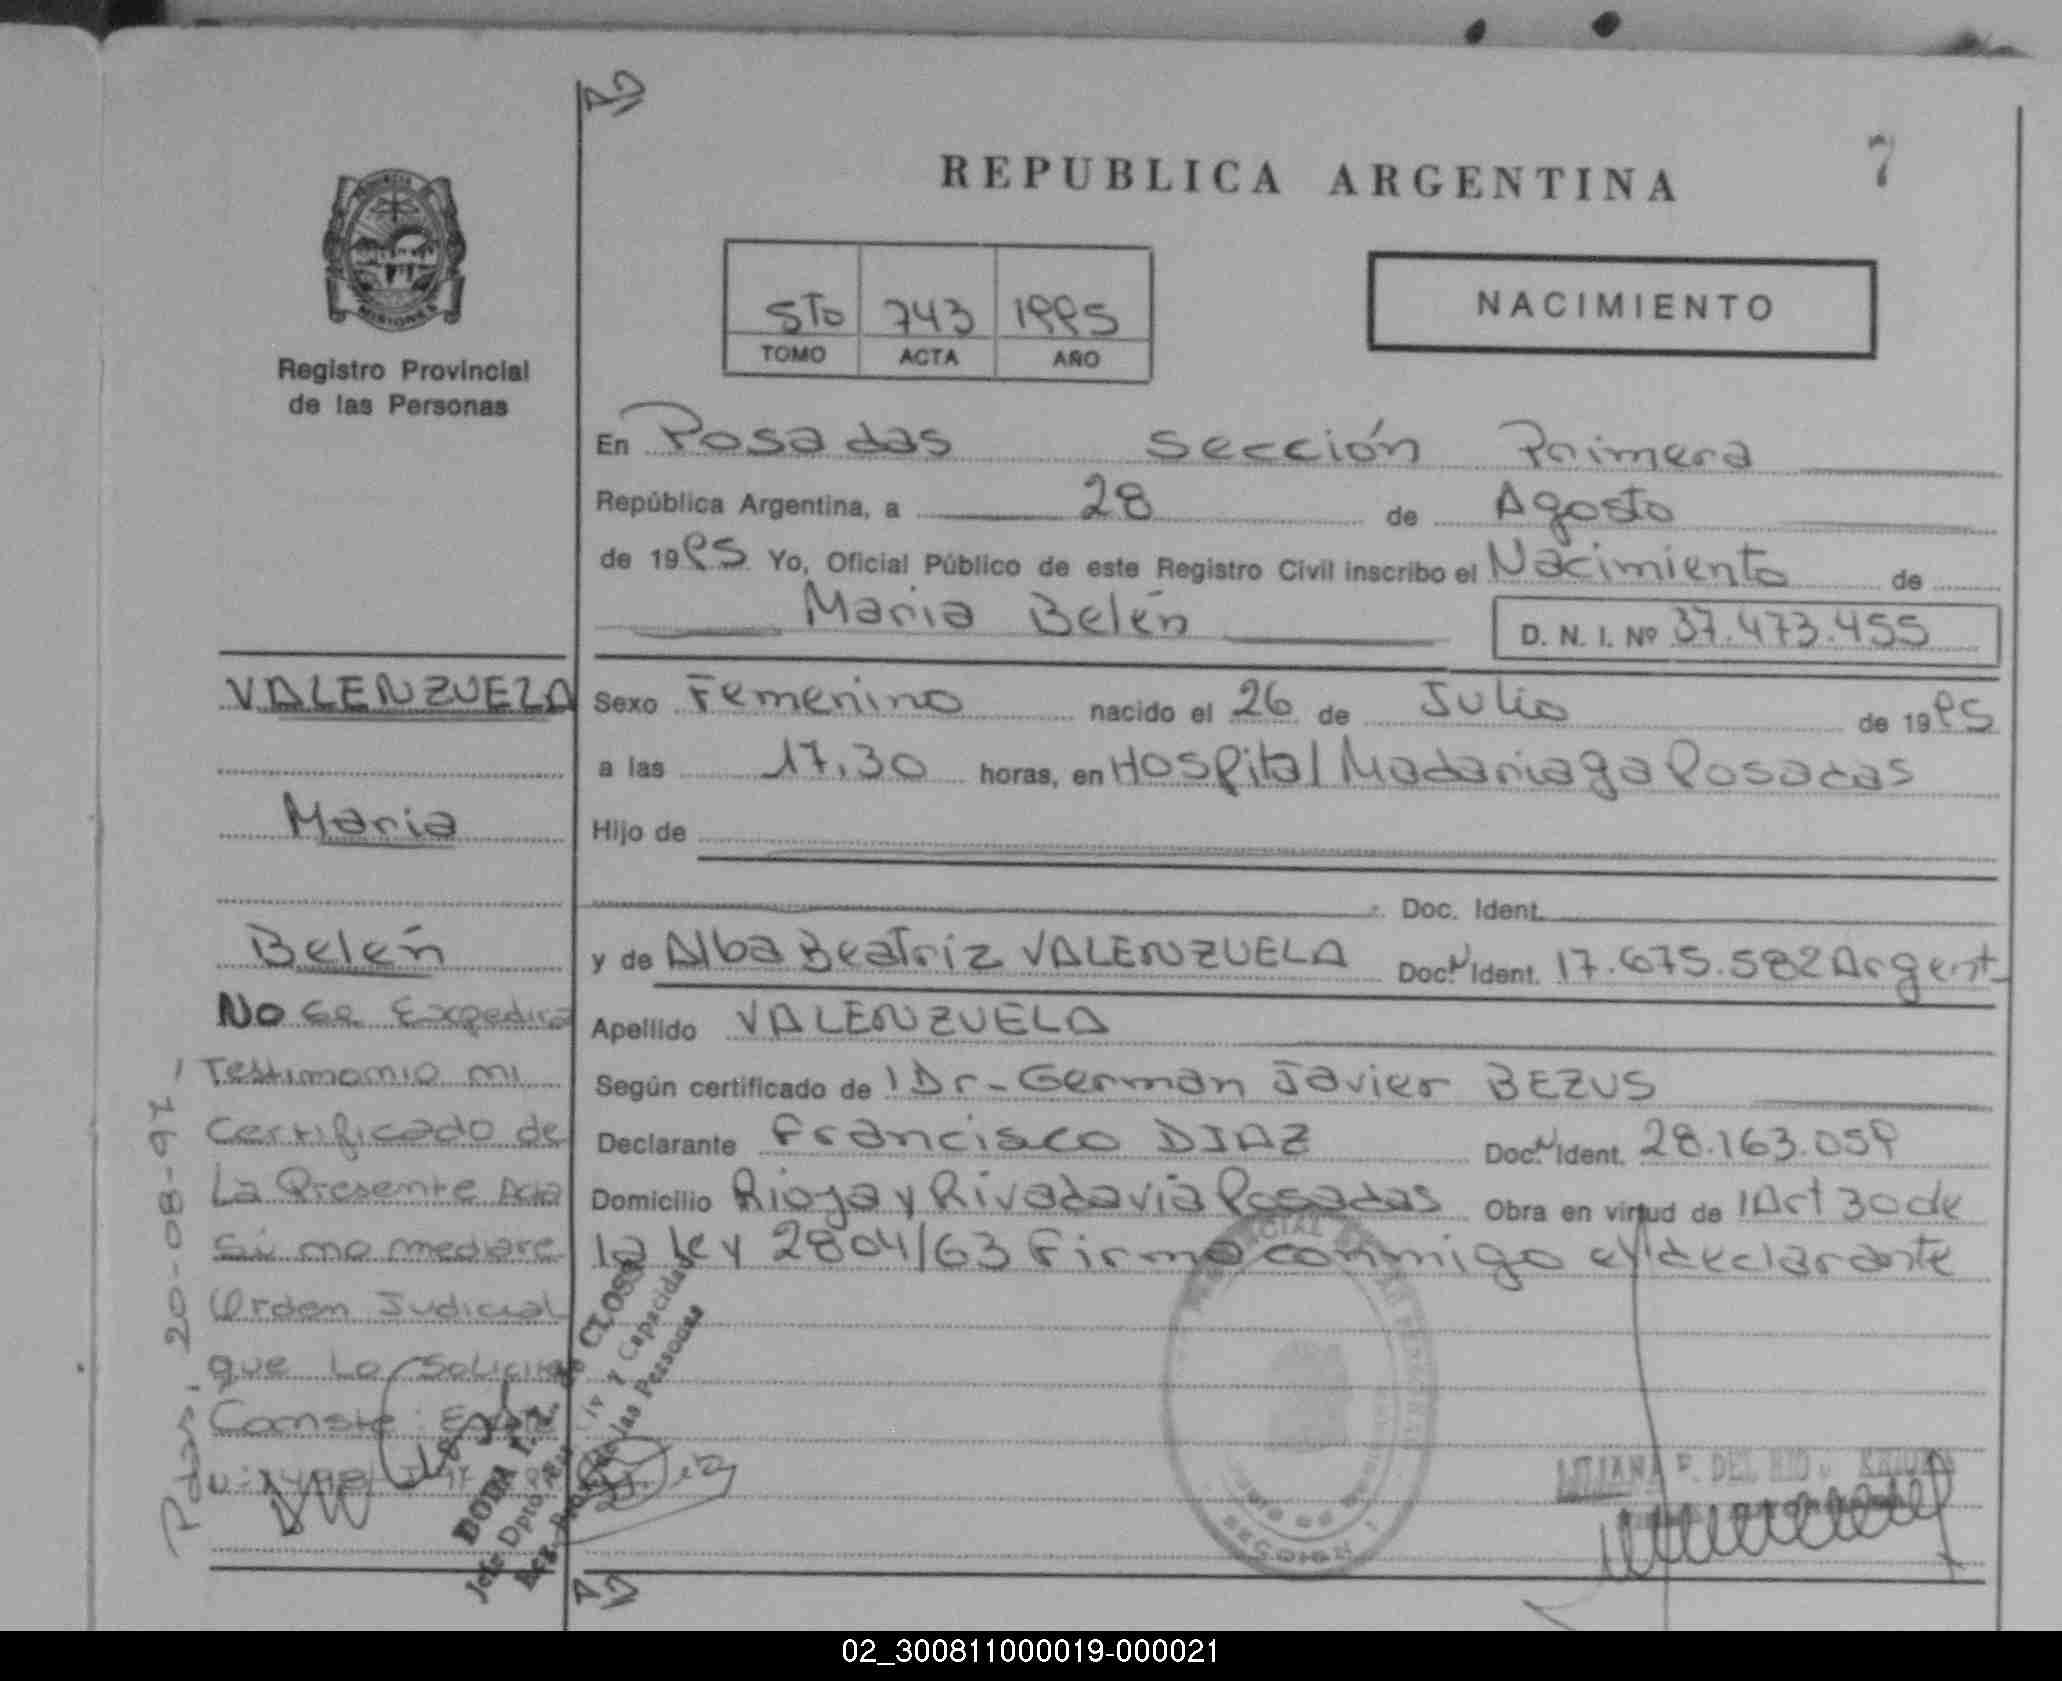 REPUBLICA ARGENTINA
7
PROVINCIA
MISIONES
Registro Provincial
de las Personas
5To 743 1995
TOMO ACTA AÑO
NACIMIENTO
En Posadas Sección Primera
República Argentina, a 28 de Agosto
de 1995 Yo, Oficial Público de este Registro Civil inscribo el Nacimiento de
Maria Belén
D. N. I. Nº 37.473.455
Sexo Femenino nacido el 26 de Julio de 1995
a las 17,30 horas, en Hospital Madariaga Posadas
Hijo de
Doc. Ident.
y de Alba Beatriz VALENZUELA Doc. N Ident. 17.675.582 Argent
Apellido VALENZUELA
Según certificado de l Dr- German Javier BEZUS
Declarante Francisco DIAZ Doc. N Ident. 28.163.059
Domicilio Rioja y Rivadavia Posadas Obra en virtud de l Art 30 de
la ley 2804/63 Firma conmigo el declarante
VALENZUELA
Maria
Belén
No se Expedira
Testimonio ni
Certificado de
La Presente Acta
Si no mediare
Orden Judicial
que Lo Solicite
Conste:
20-08-97
de CLOSS
y Capacidad
de las Personas
LILIANA DEL RIO